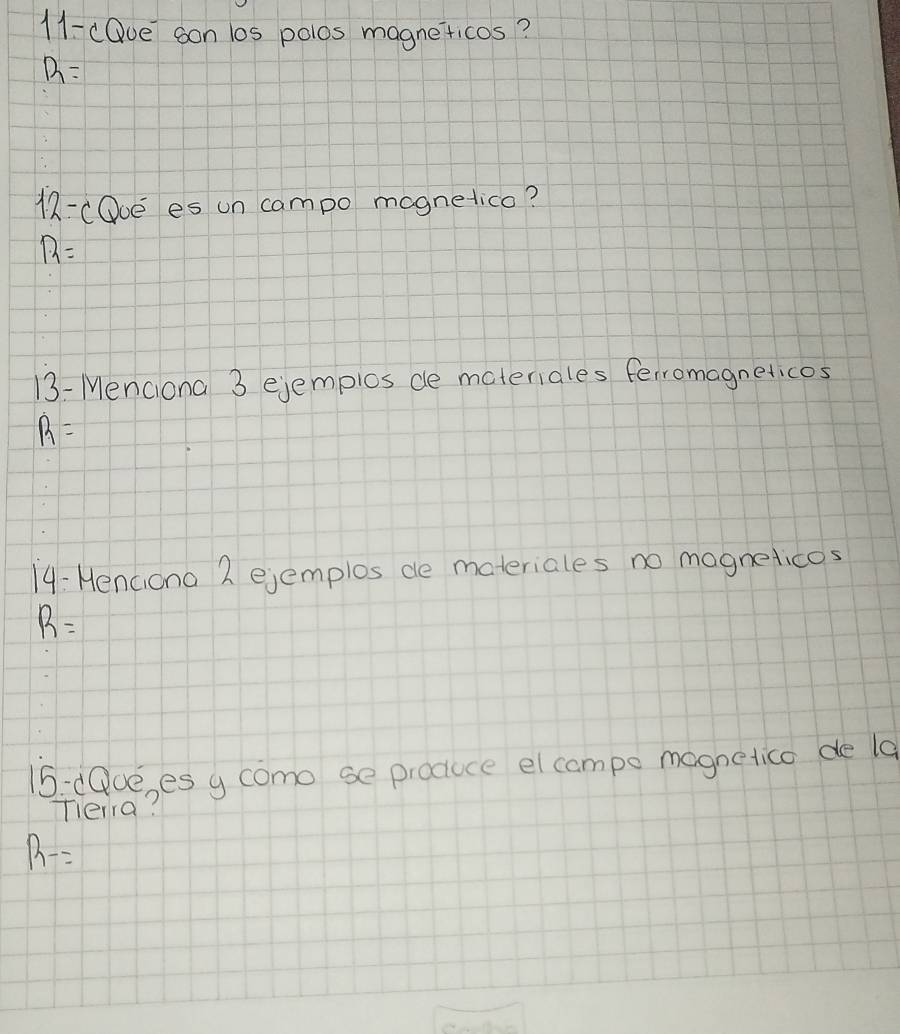 11-¿Qué son los polos magnéticos?
R=
12-¿Qué es un campo magnetico?
R=
13-Menciona 3 ejemplos de materiales ferromagneticos
R=
14-Menciona 2 ejemplos de materiales no magneticos
R=
15-¿Qué es y cómo se produce el campo magnetico de la
Tierra?
R-=